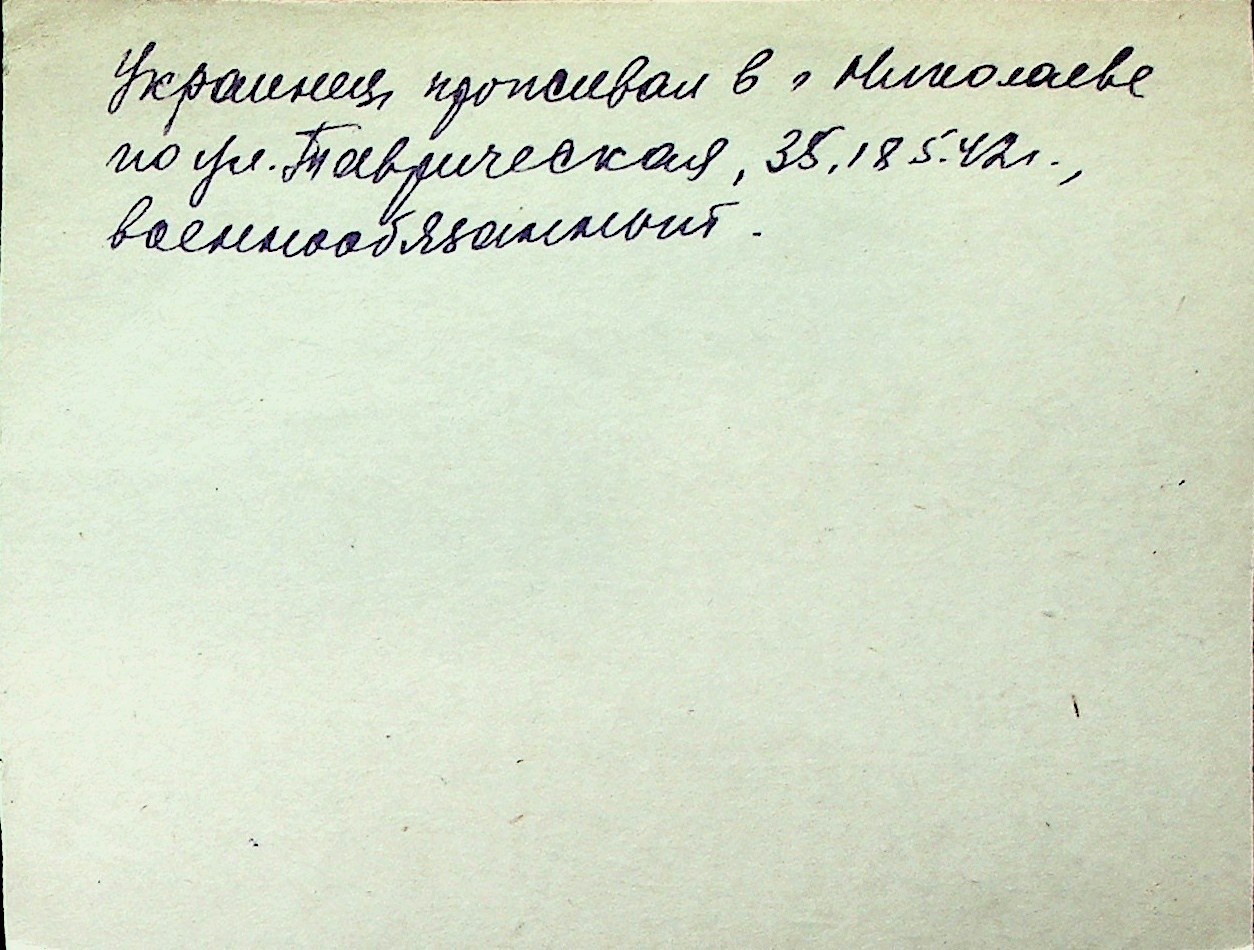 Украинец, проживал в г Николаеве
по ул. Таврическая, 35, 18 5.42г.,
военнообязанный.